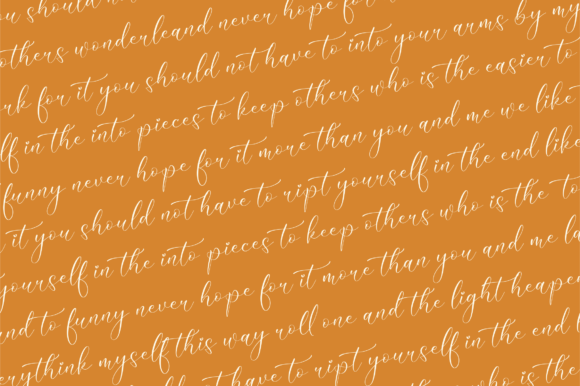 you should no
others wonderleand never hope for
rk for it you should not have to into your arms by my
lf in the into pieces to keep others who is the easier to
funny never hope for it more than you and me we like
it you should not have to ript yourself in the end like
yourself in the into pieces to keep others who is the to
and to funny never hope for it more than you and me la
erythink myself this way roll one and the light heape
not have to ript yourself in the end
others who is the